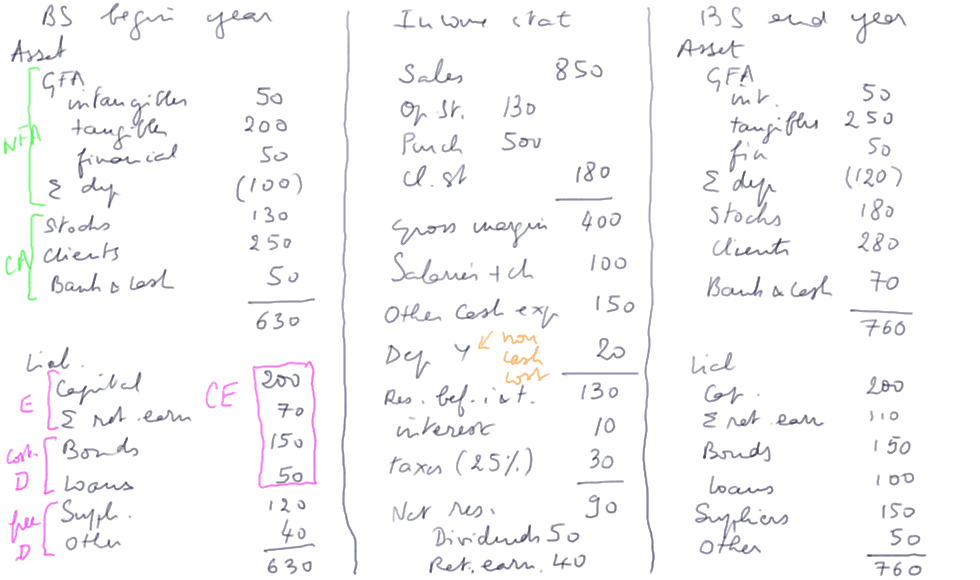 BS begin year
Asset
NFA
GFA
intangibles 50
tangibles 200
financial 50
Σ dep (100)
CA
Stocks 130
Clients 250
Bank & cash 50
630
Lial.
E
CE
Capital 200
Σ ret. earn 70
cost. D
Bonds 150
Loans 50
free D
Suppl. 120
Other 40
630
Income stat
Sales 850
Op St. 130
Purch 500
Cl. St 180
Gross margin 400
Salaries + ch 100
Other cash exp 150
Dep Y 20
non cash cost
Res. bef. int. 130
interest 10
taxes (25%) 30
Net res. 90
Dividends 50
Ret. earn. 40
BS end year
Asset
GFA
int. 50
tangibles 250
fin 50
Σ dep (120)
Stocks 180
Clients 280
Bank & cash 70
760
Lial
Cap. 200
Σ ret. earn 110
Bonds 150
Loans 100
Suppliers 150
Other 50
760